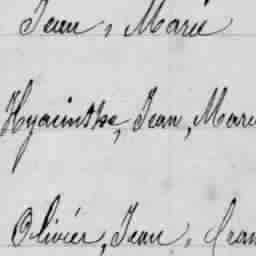 Jean, Marie
Hyacinthe, Jean, Marie
Olivier, Jean, Fran